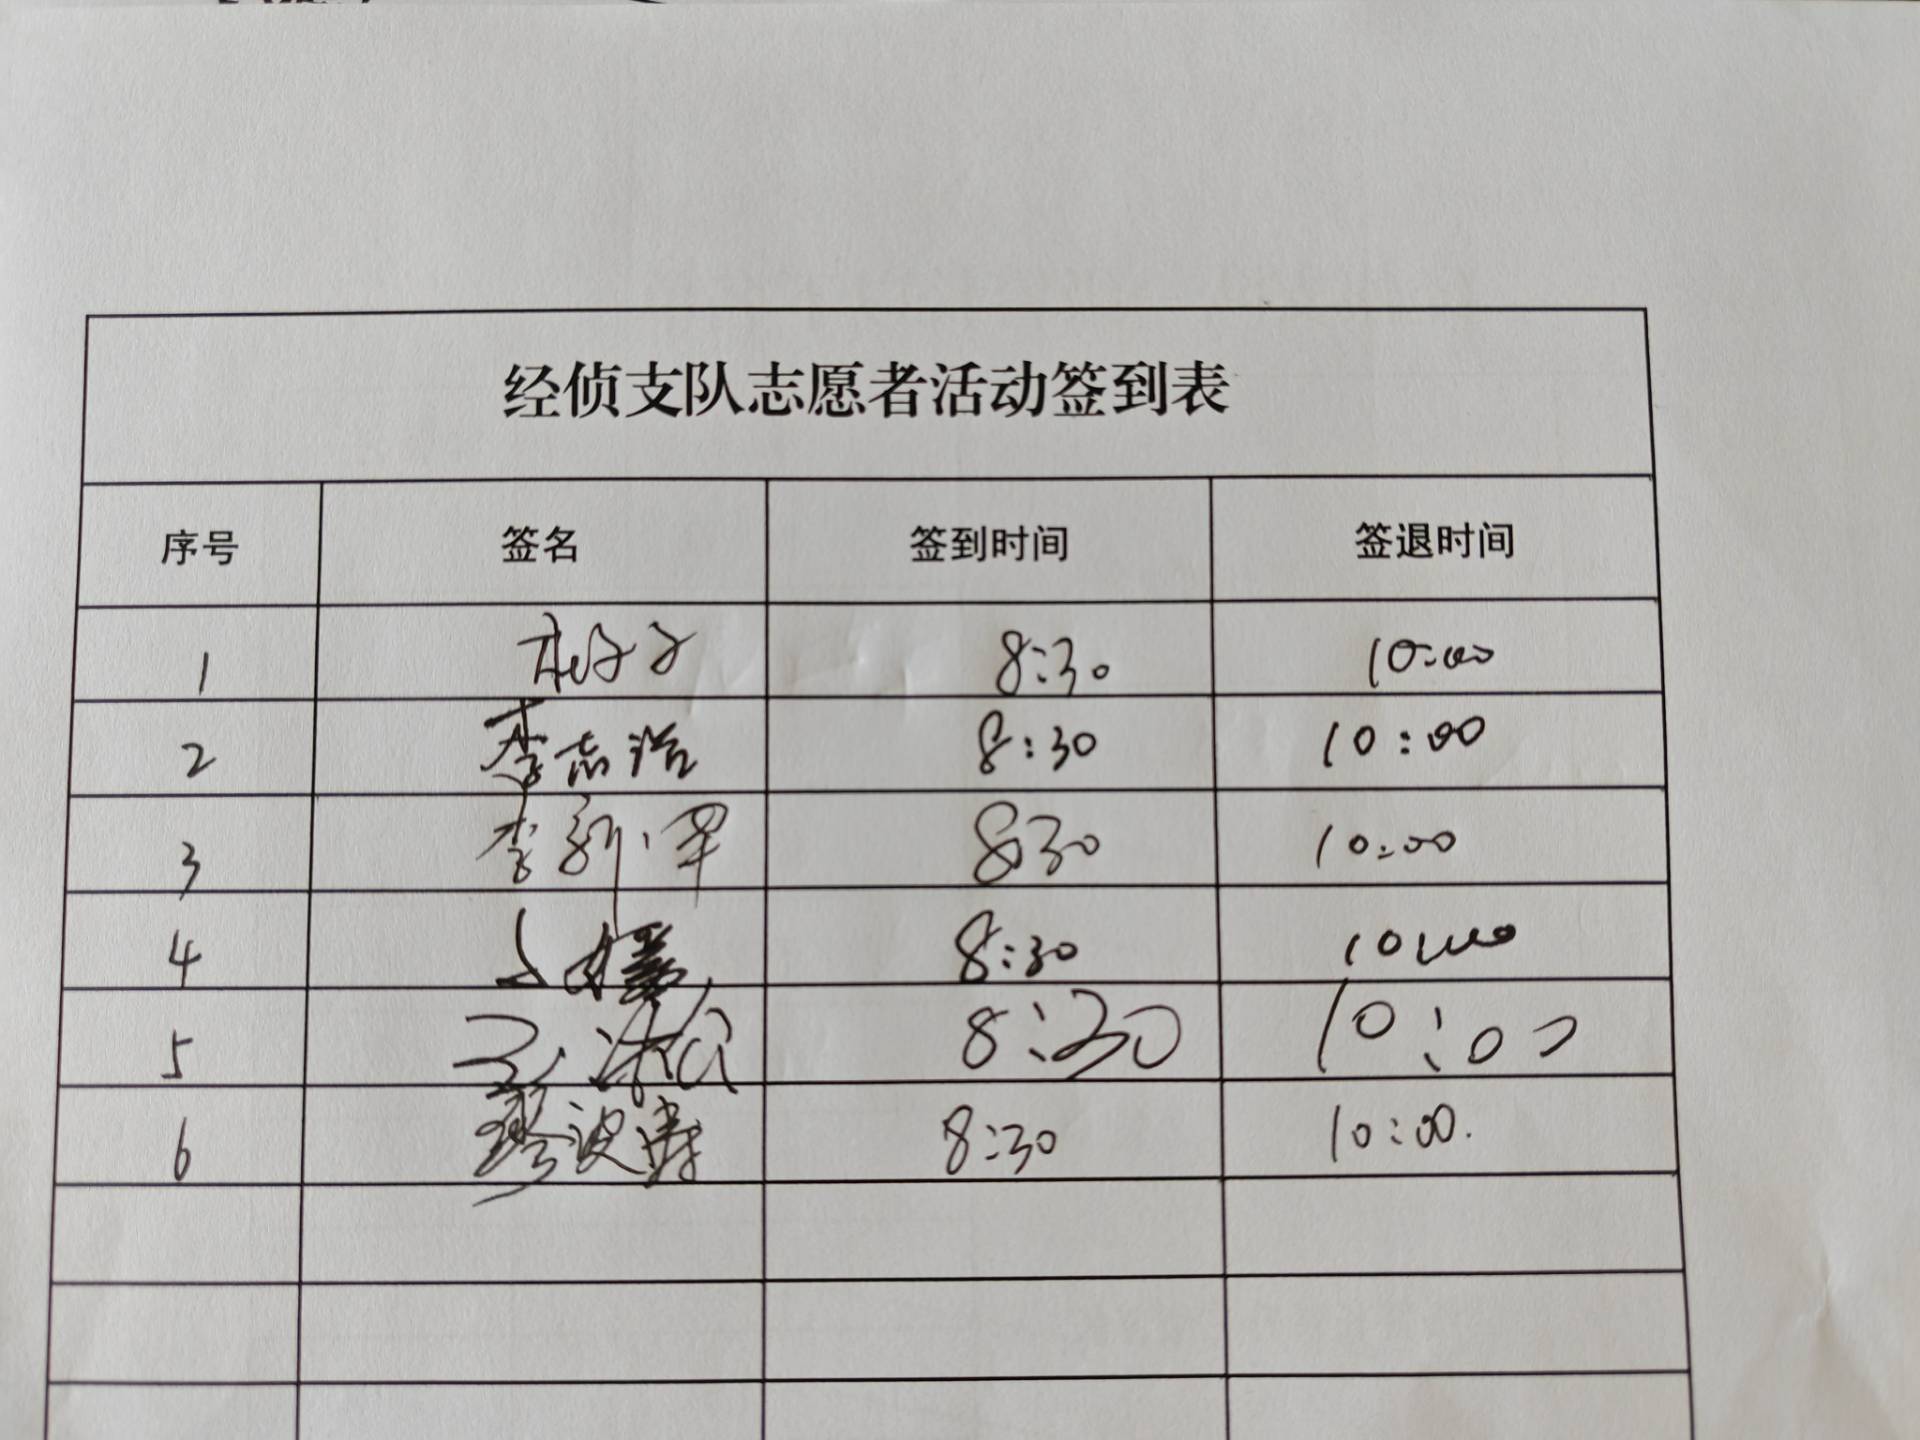 经侦支队志愿者活动签到表
序号 签名 签到时间 签退时间
1 8:30 10:00
2 李志浩 8:30 10:00
3 李新军 830 10:00
4 8:30 10:00
5 8:30 10:00
6 廖波涛 8:30 10:00.